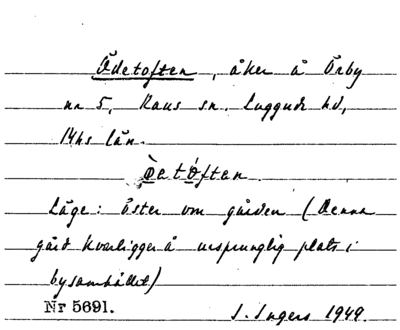 Ödetoften, åker å Örby
nr 5, Raus sn. Luggude hd,
M hs län.
Òetóften.
Läge: öster om gården (Denna
gård kvarligger å ursprunglig plats i
bysamhället)
Nr 5691. I. Ingers 1949.